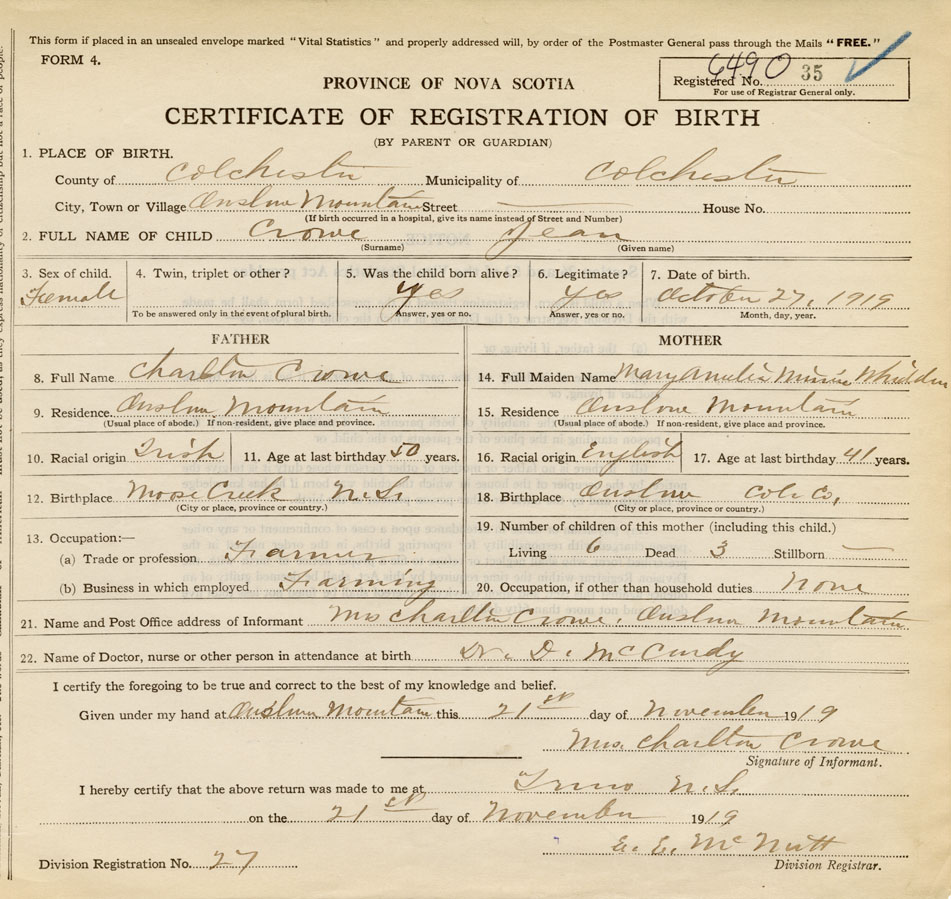 This form if placed in an unsealed envelope marked "Vital Statistics" and properly addressed will, by order of the Postmaster General pass through the Mails "FREE."
FORM 4.
6490 35
Registered No.
For use of Registrar General only.
PROVINCE OF NOVA SCOTIA
CERTIFICATE OF REGISTRATION OF BIRTH
(BY PARENT OR GUARDIAN)
1. PLACE OF BIRTH.
County of Colchester Municipality of Colchester
City, Town or Village Onslow Mountain Street — House No.
(If birth occurred in a hospital, give its name instead of Street and Number)
2. FULL NAME OF CHILD Crowe Jean
(Surname) (Given name)
3. Sex of child. 4. Twin, triplet or other? 5. Was the child born alive? 6. Legitimate? 7. Date of birth.
Female Yes Yes October 27, 1919
To be answered only in the event of plural birth. Answer, yes or no. Answer, yes or no. Month, day, year.
FATHER
8. Full Name Charlton Crowe
9. Residence. Onslow Mountain
(Usual place of abode.) If non-resident, give place and province.
10. Racial origin Irish 11. Age at last birthday 50 years.
12. Birthplace Moose Creek N.S.
(City or place, province or country.)
13. Occupation:—
(a) Trade or profession Farmer
(b) Business in which employed Farming
MOTHER
14. Full Maiden Name Mary Amelia Minnie Whidden
15. Residence Onslow Mountain
(Usual place of abode.) If non-resident, give place and province.
16. Racial origin English 17. Age at last birthday 41 years.
18. Birthplace Onslow Col. Co.,
(City or place, province or country.)
19. Number of children of this mother (including this child.)
Living 6 Dead 3 Stillborn —
20. Occupation, if other than household duties None
21. Name and Post Office address of Informant Mrs Charlton Crowe, Onslow Mountain
22. Name of Doctor, nurse or other person in attendance at birth Dr. D. McCurdy
I certify the foregoing to be true and correct to the best of my knowledge and belief.
Given under my hand at Onslow Mountain this 21st day of November 1919
Mrs. Charlton Crowe
Signature of Informant.
I hereby certify that the above return was made to me at Truro N.S.
on the 21st day of November 1919
E. E. McNutt
Division Registration No. 27 Division Registrar.